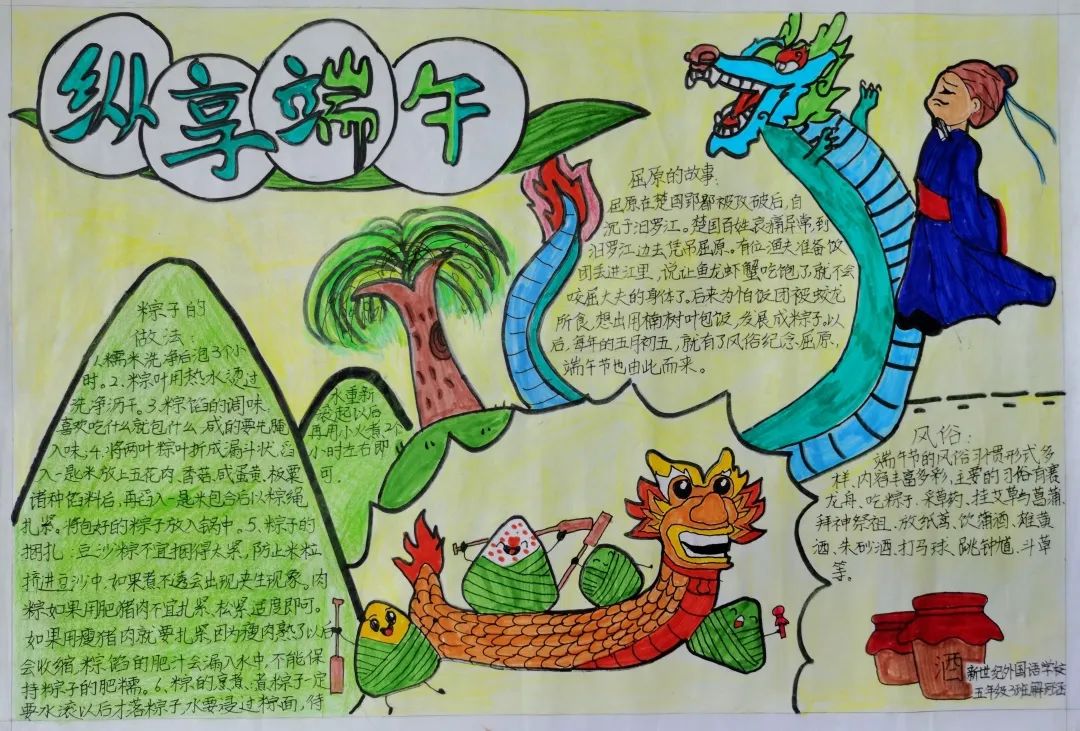 纵享端午
屈原的故事:
屈原在楚国郢都被攻破后,自
沉于汨罗江。楚国百姓哀痛异常,到
汨罗江边去凭吊屈原。有位渔夫准备饭
团丢进江里,说让鱼龙虾蟹吃饱了,就不会
咬屈大夫的身体了。后来为怕饭团被蛟龙
所食,想出用楠树叶包饭,发展成粽子。以
后,每年的五月初五,就有了风俗纪念屈原,
端午节也由此而来。
粽子的
做法:
1.糯米洗净后泡3个小
时。2.粽叶用热水烫过
洗净沥干。3.粽馅的调味,
喜欢吃什么就包什么,咸的要先腌
入味。4.将两叶粽叶折成漏斗状,舀
入一是米放上五花肉、香菇、咸蛋黄、板粟
诸种馅料后,再舀入一是米包合后以粽绳
扎紧。将包好的粽子放入锅中。5.粽子的
捆扎:豆沙粽不宜捆得太紧,防止米粒
挤进豆沙中,如果煮不透会出现夹生现象。肉
粽如果用肥猪肉不宜扎紧,松紧适度即可。
如果用瘦猪肉就要扎紧,因为瘦肉熟了以后
会收缩,粽馅的肥汁会漏入水中,不能保
持粽子的肥糯。6.粽的烹煮,煮粽子一定
要水滚以后才落粽子,水要浸过粽面,待
水重新
滚起以后
再用小火煮2个
小时左右即
可.
风俗:
端午节的风俗习惯形式多
样、内容丰富多彩,主要的习俗有赛
龙舟、吃粽子、采草药、挂艾草与菖蒲、
拜神祭祖、放纸鸢、饮蒲酒、雄黄
酒、朱砂酒、打马球、跳钟馗、斗草
等。
酒
新世纪外国语学校
五年级3班解